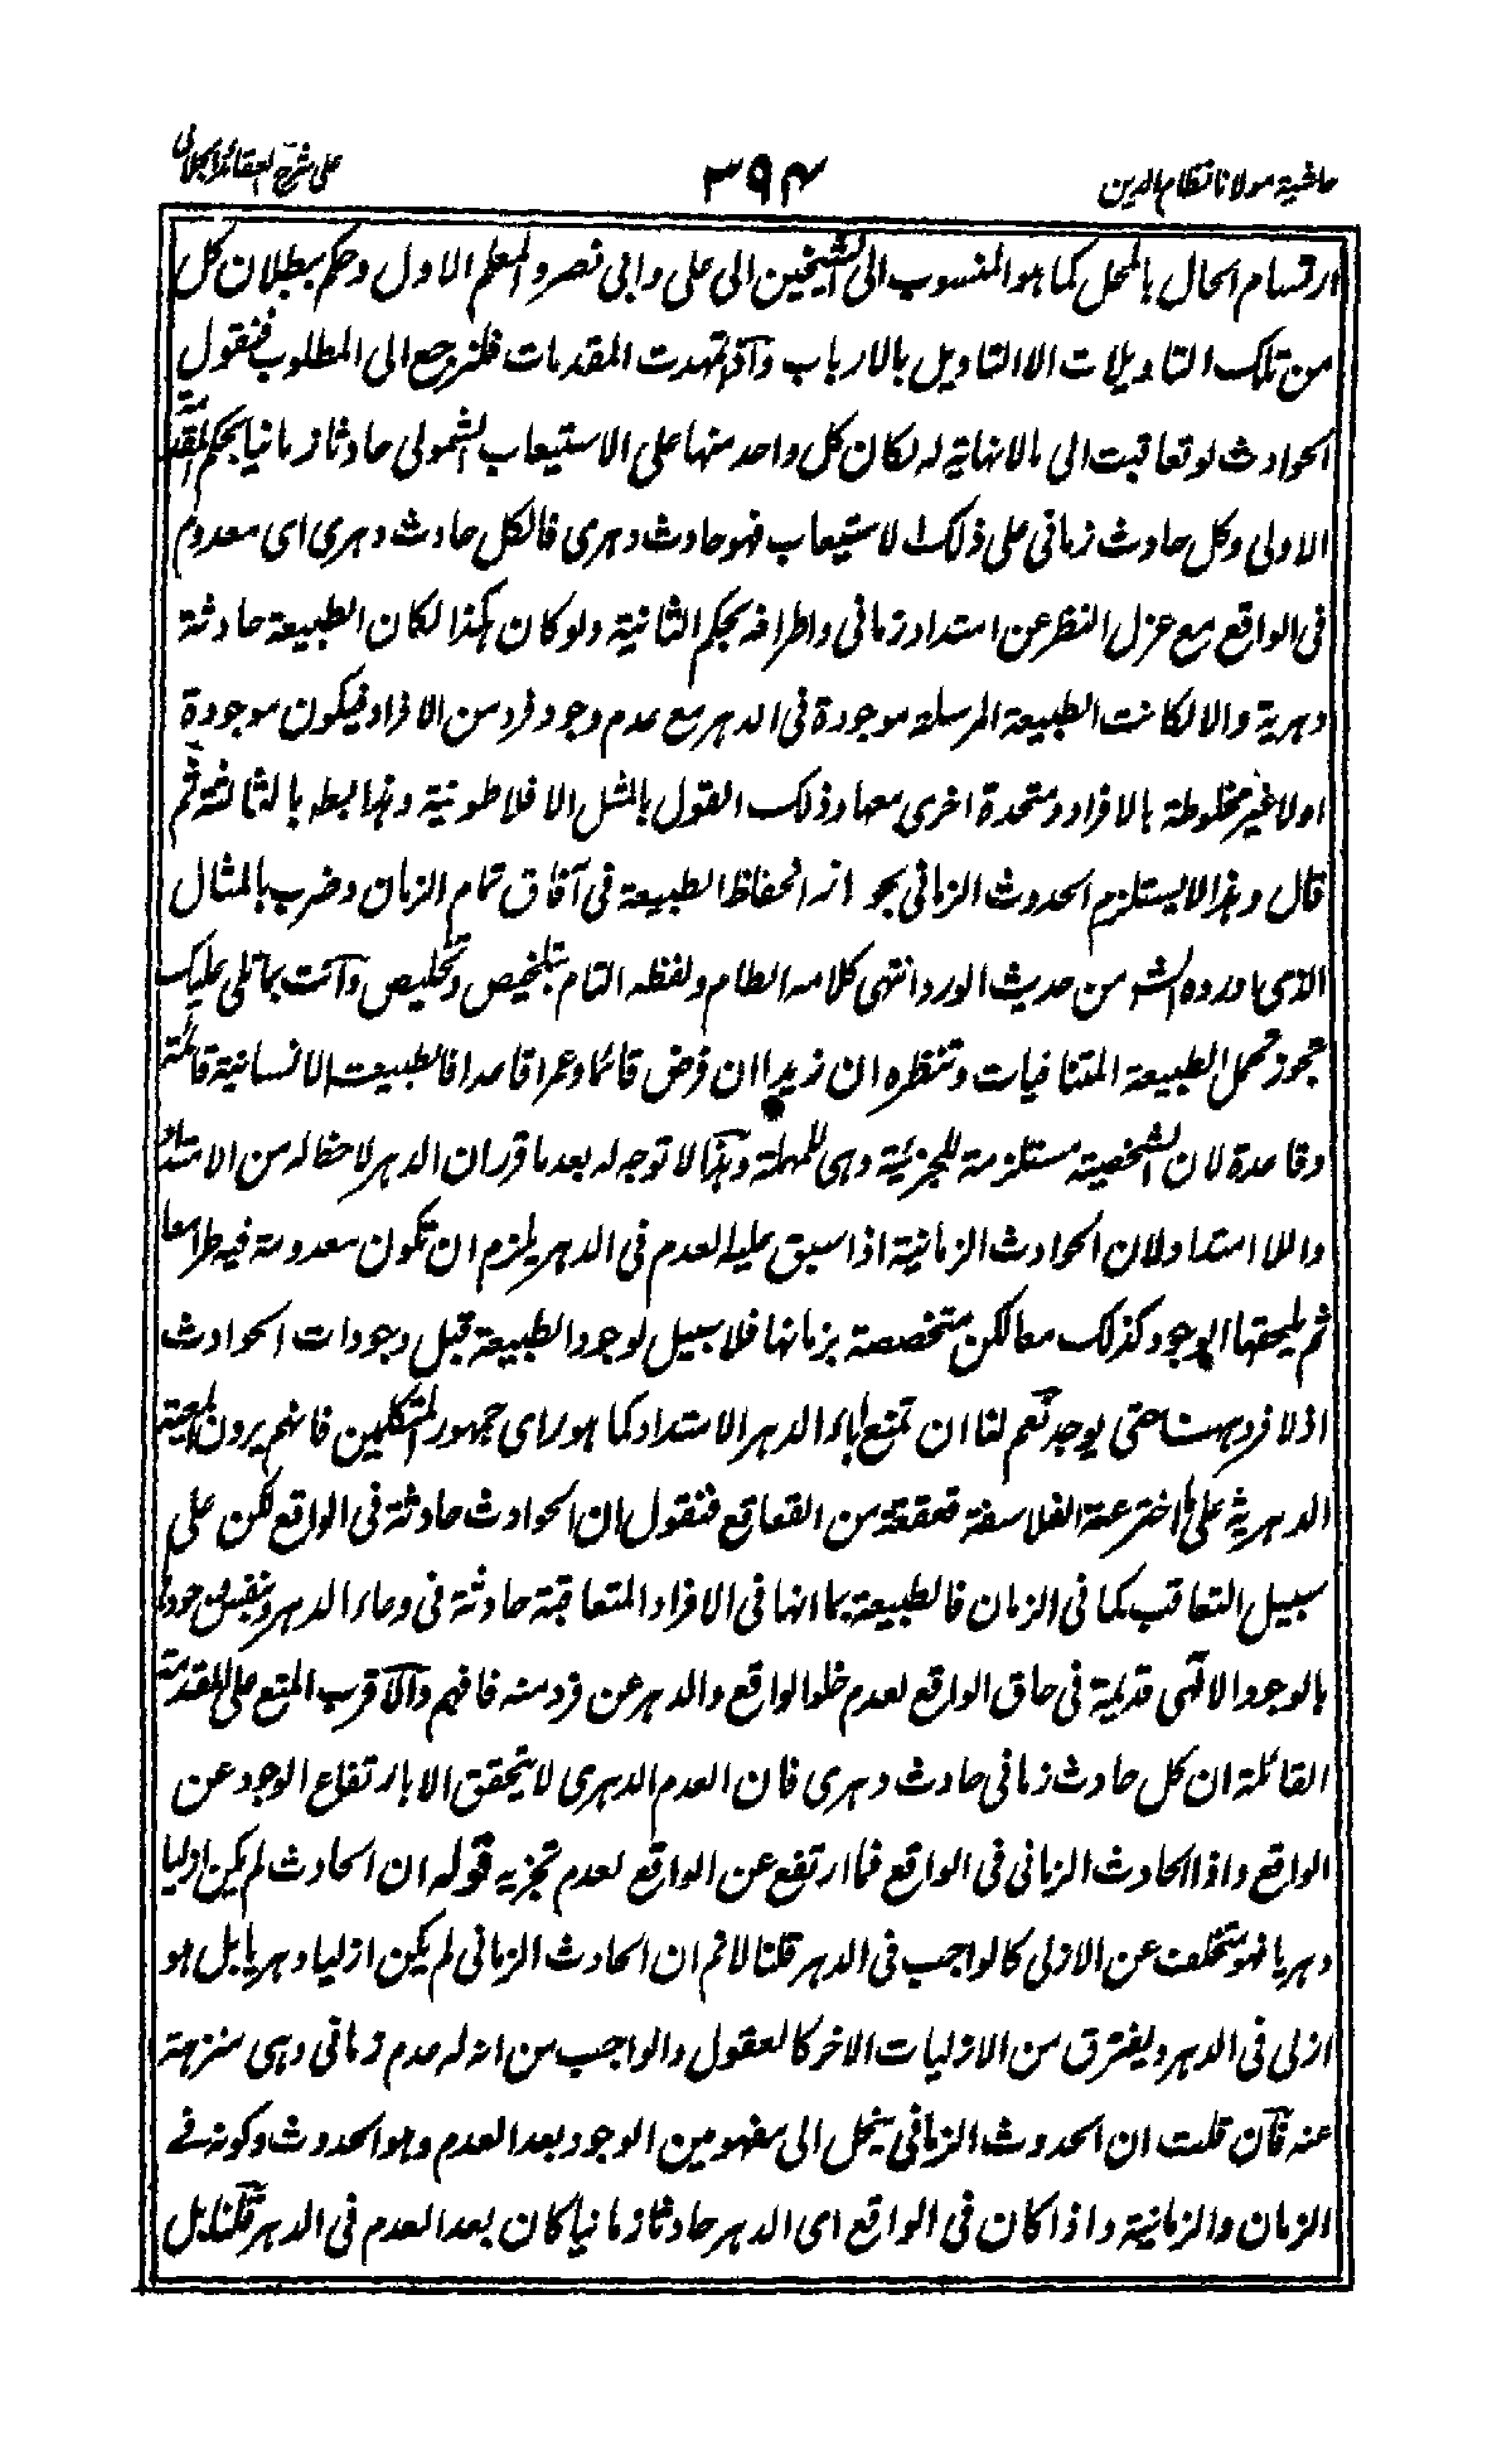 حاشیة مولانا نظام الدین
۳۹۴
علی شرح العقائد الجلالی
ارتسام الحال بالمحل کما هو المنسوب الی الشیخین ابی علی وابی نصر والمعلم الاول وحکم ببطلان کل
من تلک التاویلات الا التاویل بالارباب واذ تمهدت المقدمات فلنرجع الی المطلوب فنقول
الحوادث لو تعاقبت الی ما لا نهایة له لکان کل واحد منها علی الاستیعاب الشمولی حادثا زمانیا بحکم المقدمة
الاولی وکل حادث زمانی علی ذلک الاستیعاب فهو حادث دهری فالکل حادث دهری ای معدوم
فی الواقع مع عزل النظر عن امتداد زمانی واطرافه بحکم الثانیة ولو کان هکذا لکان الطبیعة حادثة
دهریة والا لکانت الطبیعة المرسلة موجودة فی الدهر مع عدم وجود فرد من الافراد فیکون موجودة
اولا غیر مخلوطة بالافراد ومتحدة اخری معها وذلک القول بالمثل الافلاطونیة وبذا بطه بالثالثة ثم
قال وهذا لا یستلزم الحدوث الزمانی بجواز انحفاظ الطبیعة فی آفاق تمام الزمان وضرب بالمثال
الذی اورده الش من حدیث الورد انتهی کلامه الطام ولفظه التام بتلخیص وتخلیص وانت بما تلی علیک
تجوز تحمل الطبیعة المتنافیات وتنظره ان زیدا ان فرض قائما وعمرا قاعدا فالطبیعت الانسانیة قائمة
وقاعدة لان الشخصیة مستلزمة للجزئیة وهی للمهملة وهذا لا توجه له بعد ما قرر ان الدهر لا حظ له من الامتداد
واللا امتداد ولان الحوادث الزمانیة اذا سبق علیها العدم فی الدهر یلزم ان تکون معدومة فیه طرا معا
ثم یلحقها الوجود کذلک معا لکن متخصصة بزمانها فلا سبیل لوجود الطبیعة قبل وجودات الحوادث
اذ لا فرد هناک حتی یوجد نعم لنا ان نمنع اباء الدهر الامتداد کما هو رای جمهور المتکلمین فانهم یرون المعیة
الدهریة علی ما اخترعته الفلاسفة قعقعة من القعاقع فنقول ان الحوادث حادثة فی الواقع لکن علی
سبیل التعاقب کما فی الزمان فالطبیعة بما انها فی الافراد المتعاقبة حادثة فی وعاء الدهر وبنفس وجودها
بالوجود الالهی قدیمة فی حاق الواقع لعدم خلو الواقع والدهر عن فرد منه فافهم والاقرب المنع علی المقدمة
القائلة ان کل حادث زمانی حادث دهری فان العدم الدهری لا یتحقق الا بارتفاع الوجود عن
الواقع واذا الحادث الزمانی فی الواقع فما ارتفع عن الواقع لعدم تجزیه قوله ان الحادث لم یکن ازلیا
دهریا فهو متخلف عن الازلی کالواجب فی الدهر قلنا لا نم ان الحادث الزمانی لم یکن ازلیا دهریا بل هو
ازلی فی الدهر ویفترق من الازلیات الاخر کالعقول والواجب من انه له عدم زمانی وهی منزهة
عنه فان قلت ان الحدوث الزمانی ینحل الی مفهومین الوجود بعد العدم وهو الحدوث وکونه فے
الزمان والزمانیة واذا کان فی الواقع ای الدهر حادثا زمانیا کان بعد العدم فی الدهر قلنا بل